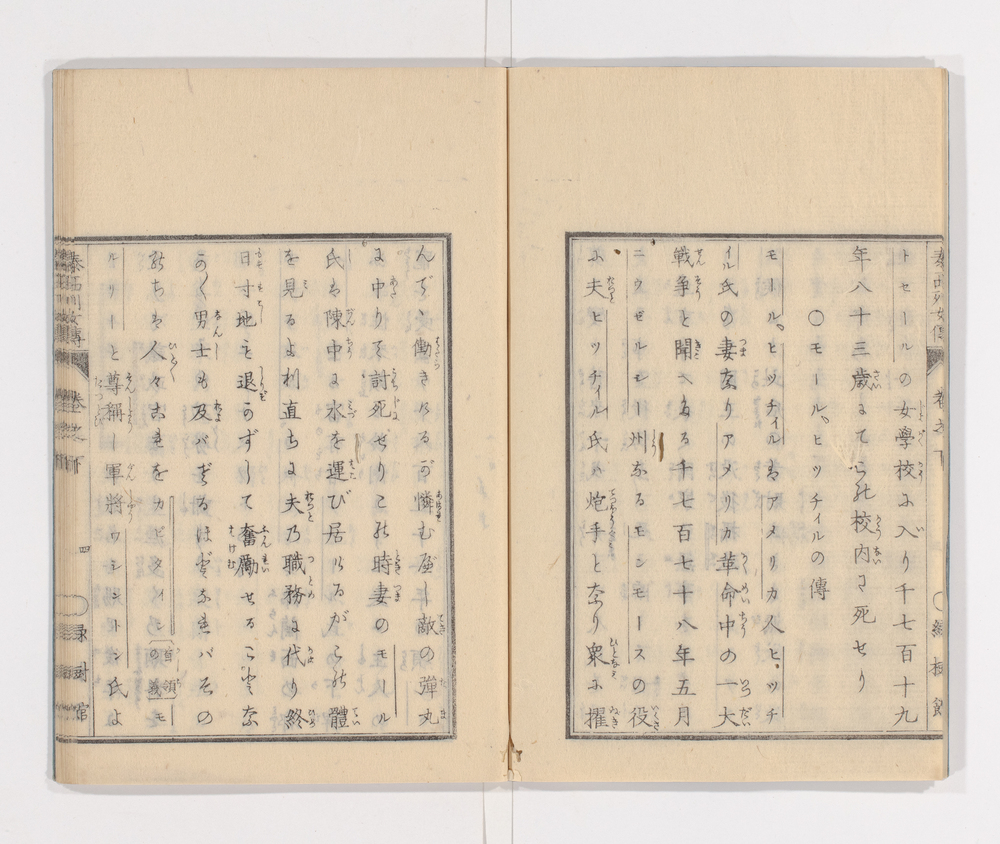 トセールの女學校に入り千七百十九
年八十三歳にてらの校内に死せり
〇モール、ヒッチイルの傳
モール、ヒッチイルはアメリカ人ヒッチ
イル氏の妻なりアメリカ革命中の一大
戦争と聞へたる千七百七十八年五月
ニウゼルシー州なるモンモースの役
に夫ヒッチイル氏ハ炮手となり衆に擢
んでゝ働きけるが憐む
年敵の彈丸
に中りて討死せりこの時妻のモール
氏は陳中に水を運び居けるがらの體
を見るより直ちに夫乃職務に代り終
日寸地を退かずして奮勵せること
男士も及バざるほどなれバ
のちは人々これをカピタイヒ(首領の義)モ
ルリーと尊稱し軍將ワシントン氏よ
泰西列女傳 卷之下 四